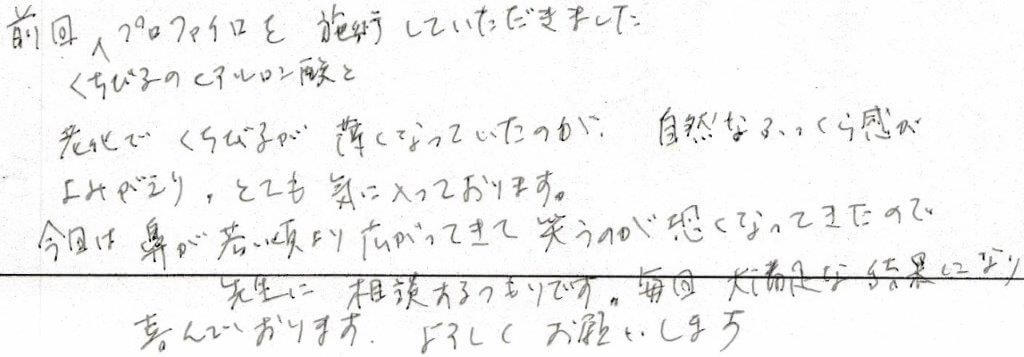 前回 プロファイロを 施術していただきました
くちびるのヒアルロン酸と
老化で くちびるが 薄くなっていたのが、 自然なふっくら感が
よみがえり、とても 気に入っております。
今回は 鼻が 若い頃より 広がってきて 笑うのが 恐くなってきたので
先生に 相談するつもりです。毎回 大満足な 結果になり
喜んでおります。 よろしく お願いします